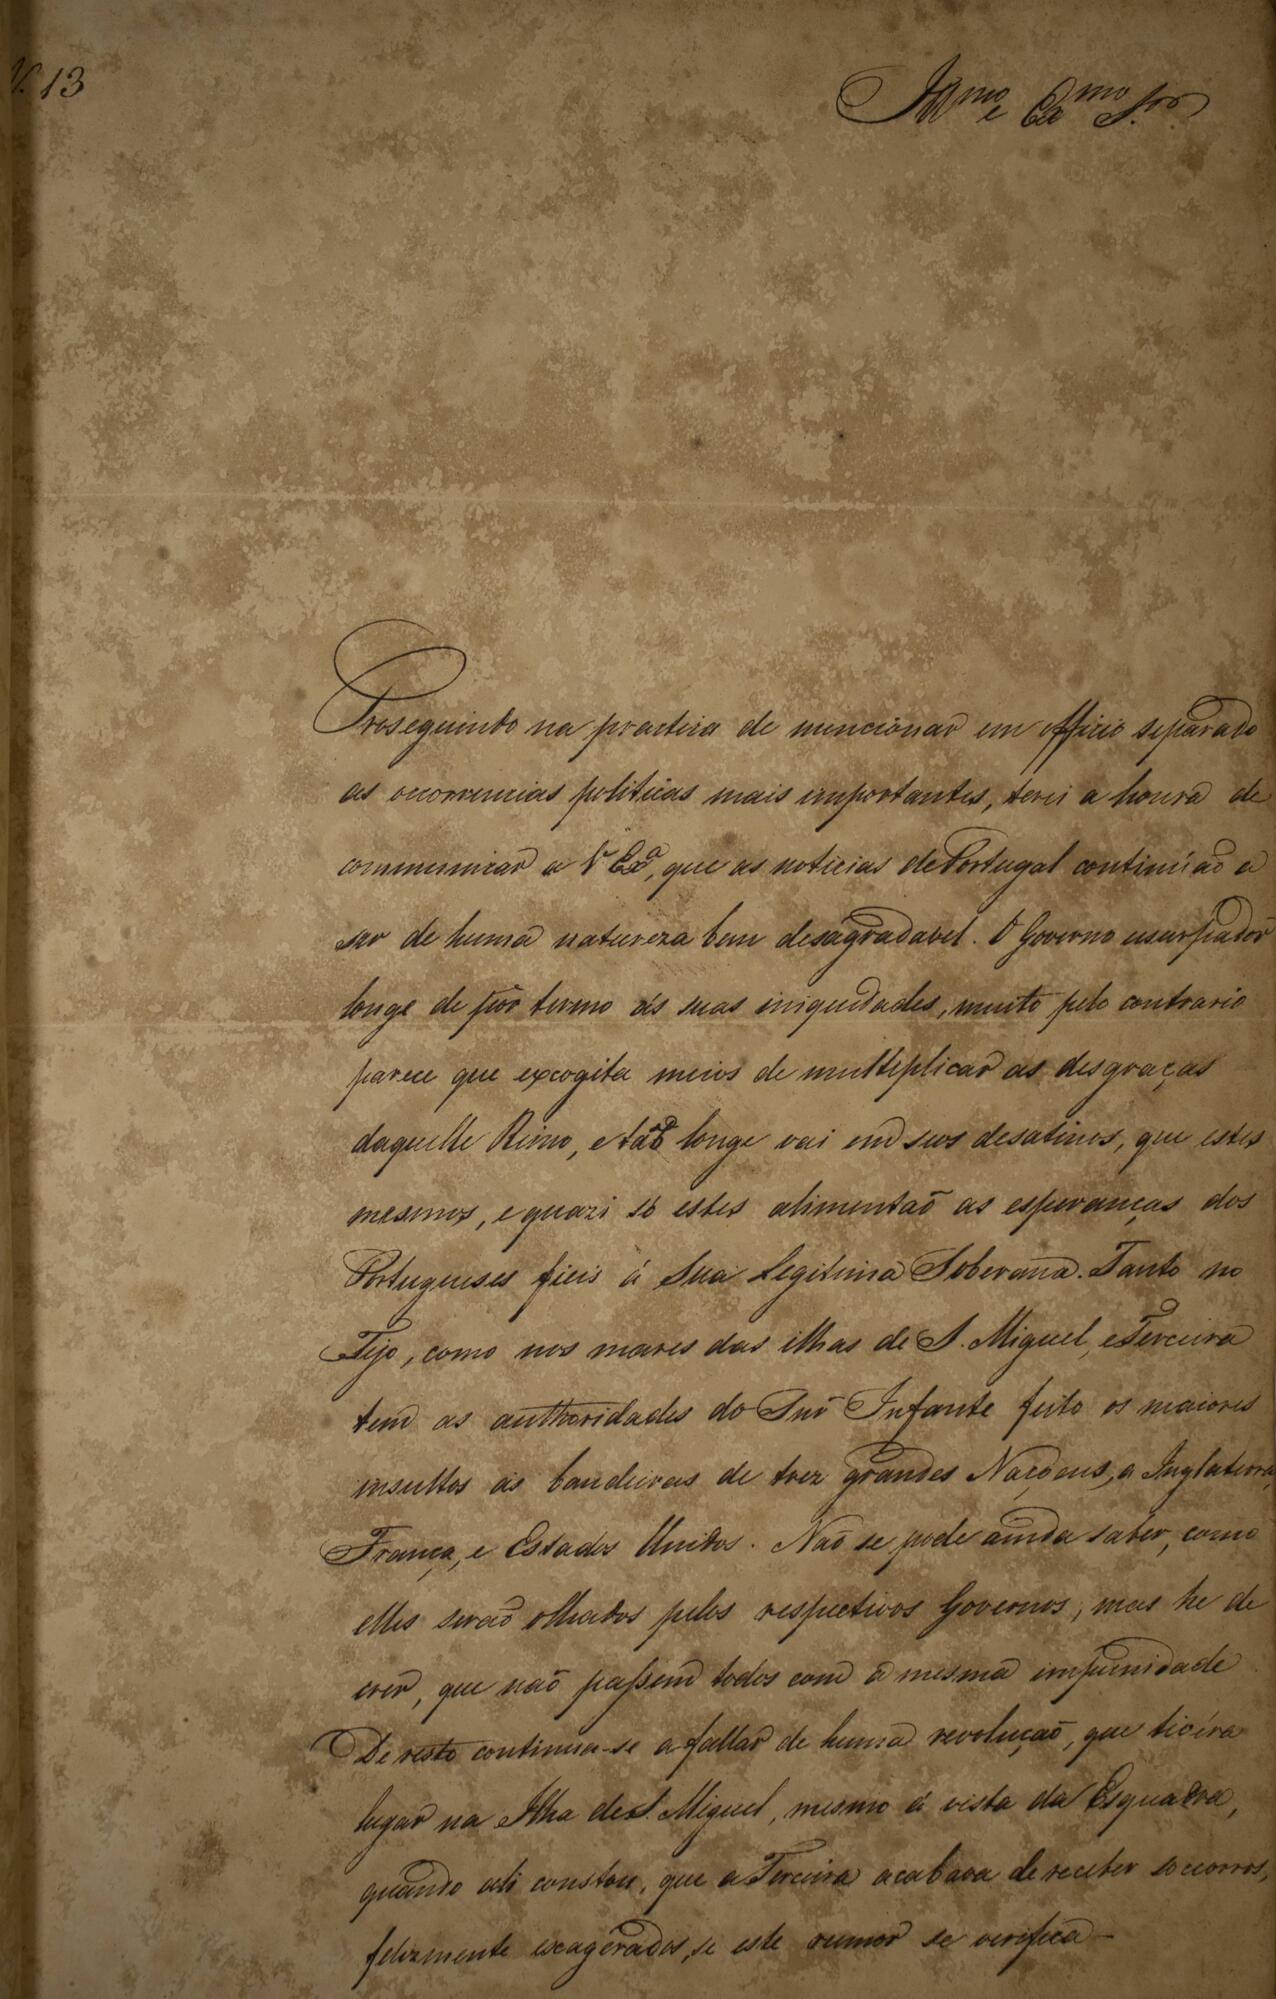 N. 13
Illmo e Exmo Snr
Proseguindo na practica de mencionar em officio separado
as occorrencias politicas mais importantes, terei a honra de
communicar a V. Exa, que as noticias de Portugal continúaõ a
ser de huma natureza bem desagradavel. O Governo usurpador
longe de pôr termo ás suas iniquidades, muito pelo contrario
parece que excogita meios de multiplicar as desgraças
daquelle Reino, e taõ longe vai em seus desatinos, que estes
mesmos, e quazi só estes alimentaõ as esperanças dos
Portugueses fieis á Sua Legitima Soberana. Tanto no
Tejo, como nos mares das ilhas de S. Miguel, e Terceira
tem as authoridades do Snr Infante feito os maiores
insultos ás bandeiras de trez grandes Naçoens, a Inglaterra,
França, e Estados Unidos. Naõ se pode ainda saber, como
elles seraõ olhados pelos respectivos Governos, mas he de
crer, que naõ passem todos com a mesma impunidade
De resto continua-se a fallar de huma revoluçaõ, que tivéra
lugar na Ilha de S. Miguel, mesmo á vista da Esquadra,
quando ali constou, que a Terceira acabava de receber soccorros,
felizmente exagerados, se este rumor se verifica